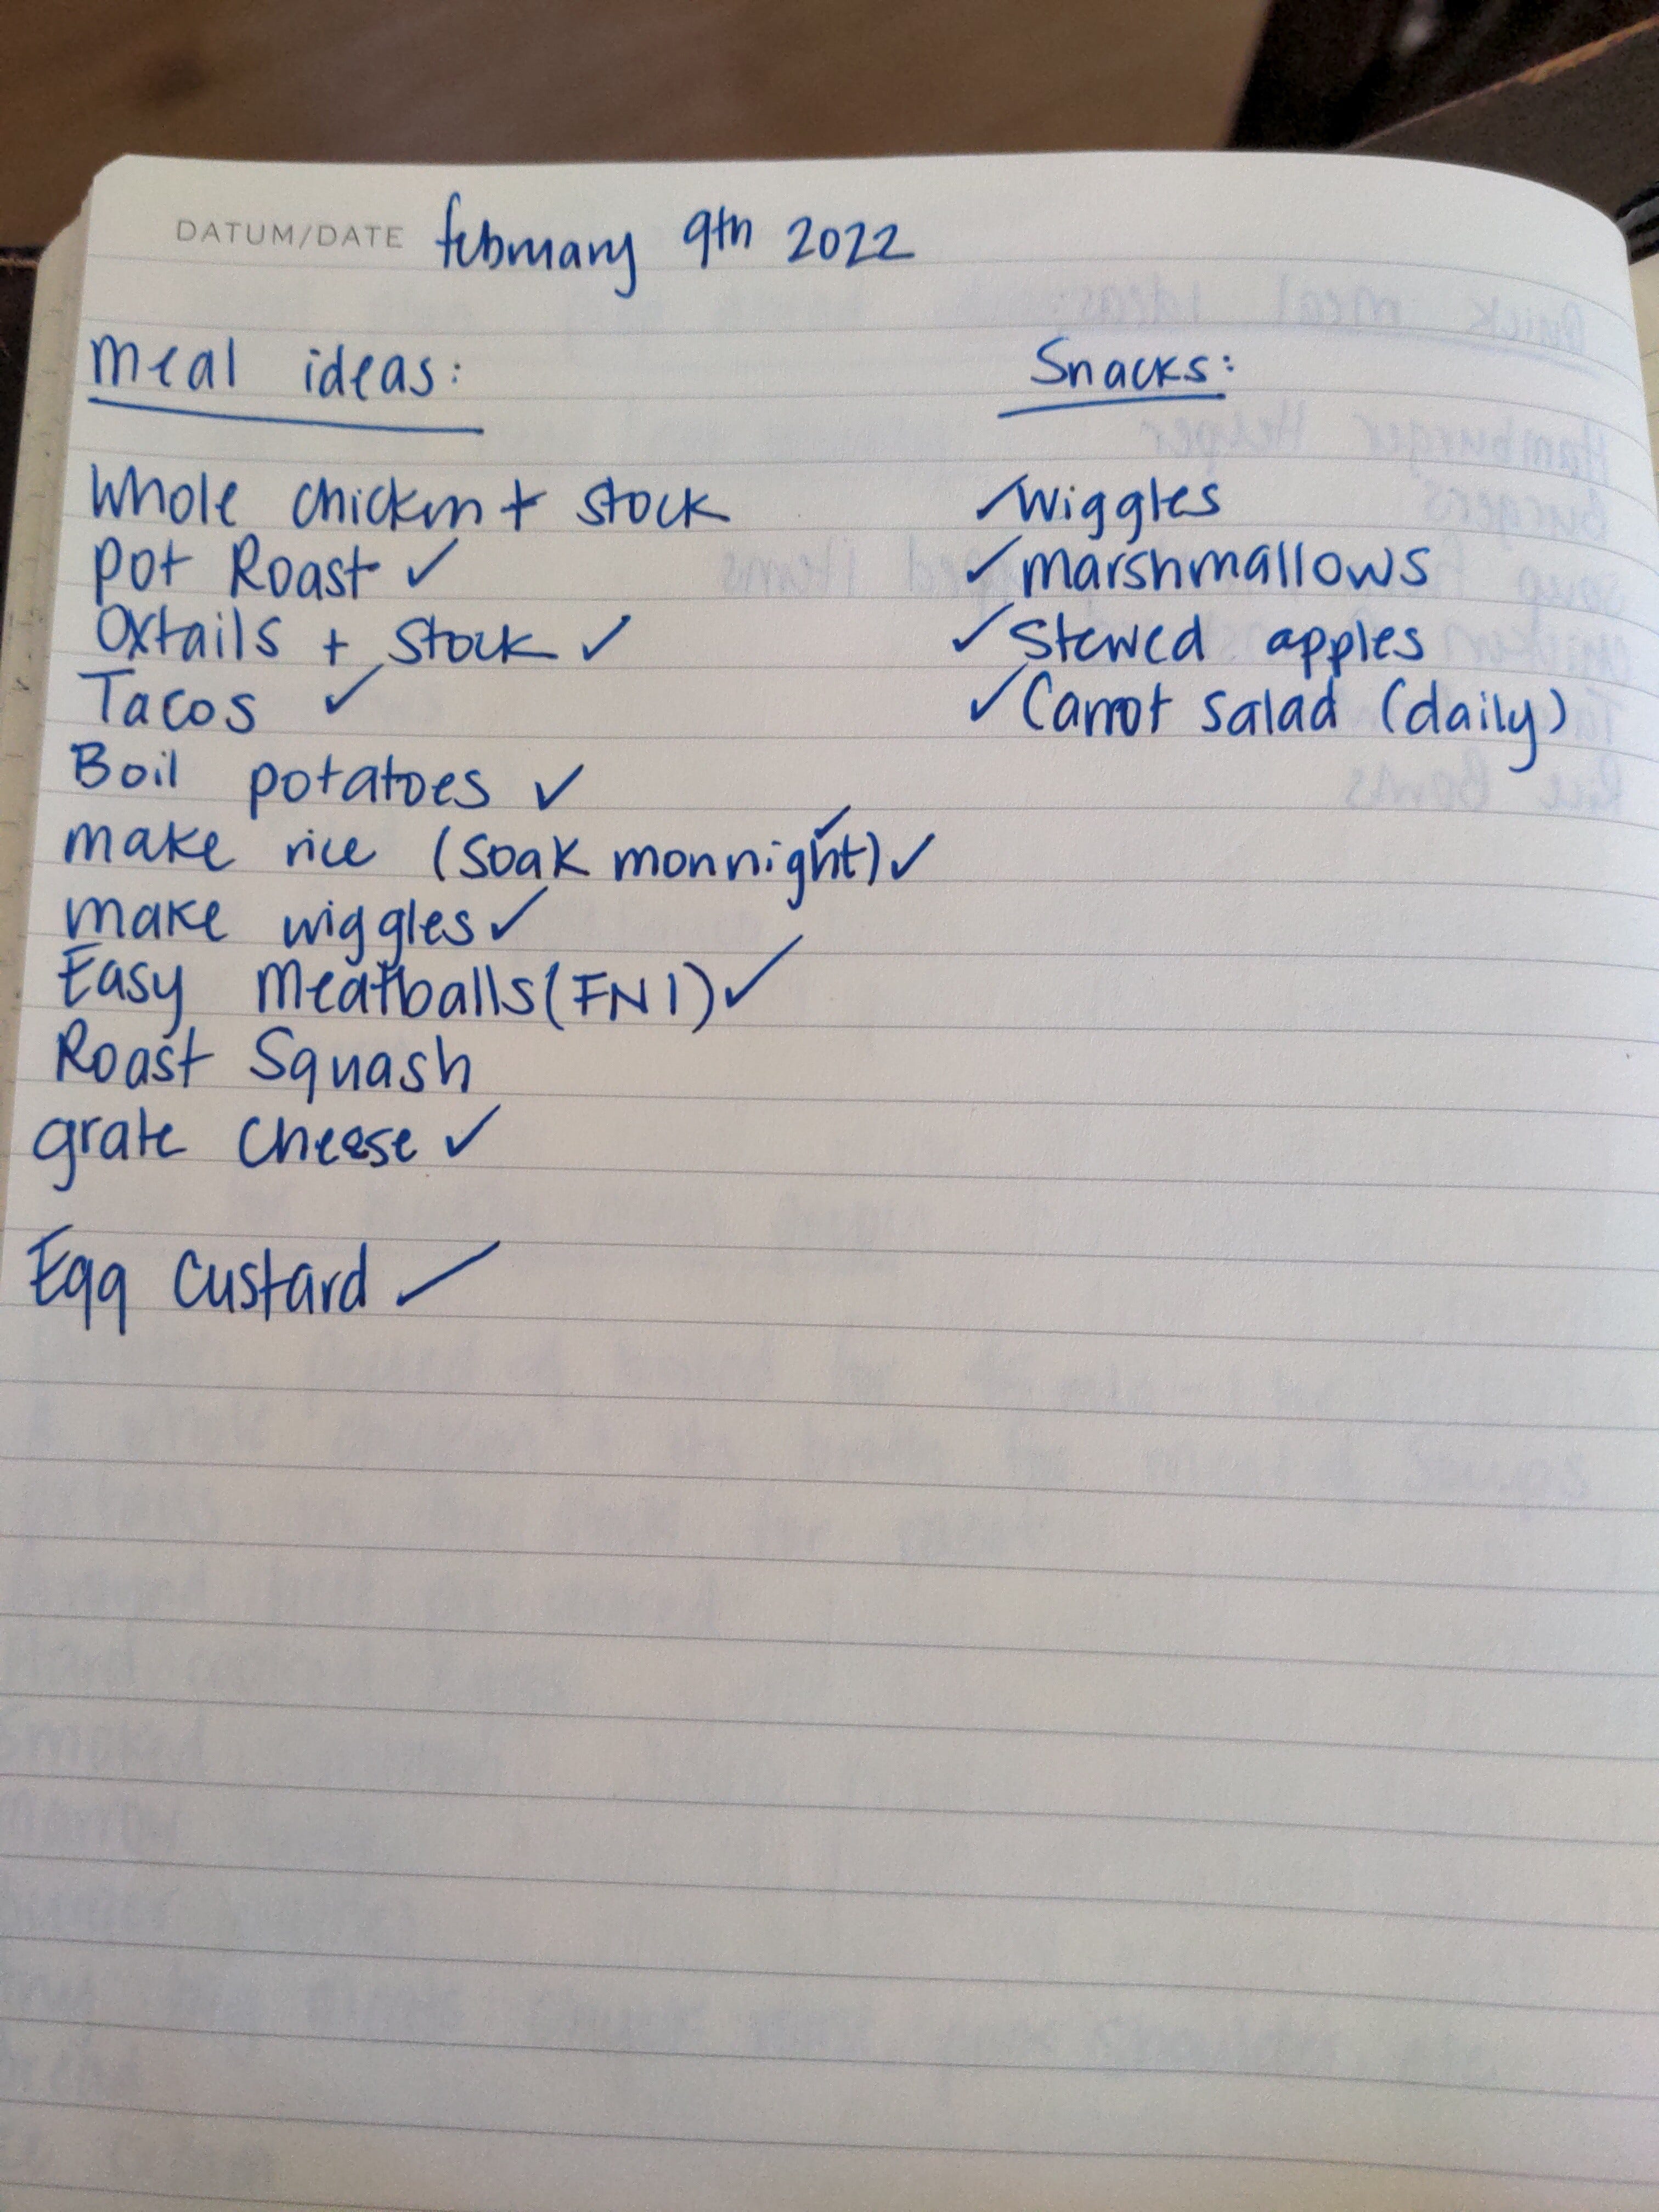 DATUM/DATE february 9th 2022
Meal ideas:
Whole chicken + stock
Pot Roast ✓
Oxtails + Stock ✓
Tacos ✓
Boil potatoes ✓
make rice (soak mon night) ✓
make wiggles ✓
Easy Meatballs (FN1) ✓
Roast Squash
grate cheese ✓
Egg Custard ✓
Snacks:
✓ wiggles
✓ marshmallows
✓ Stewed apples
✓ Carrot Salad (daily)